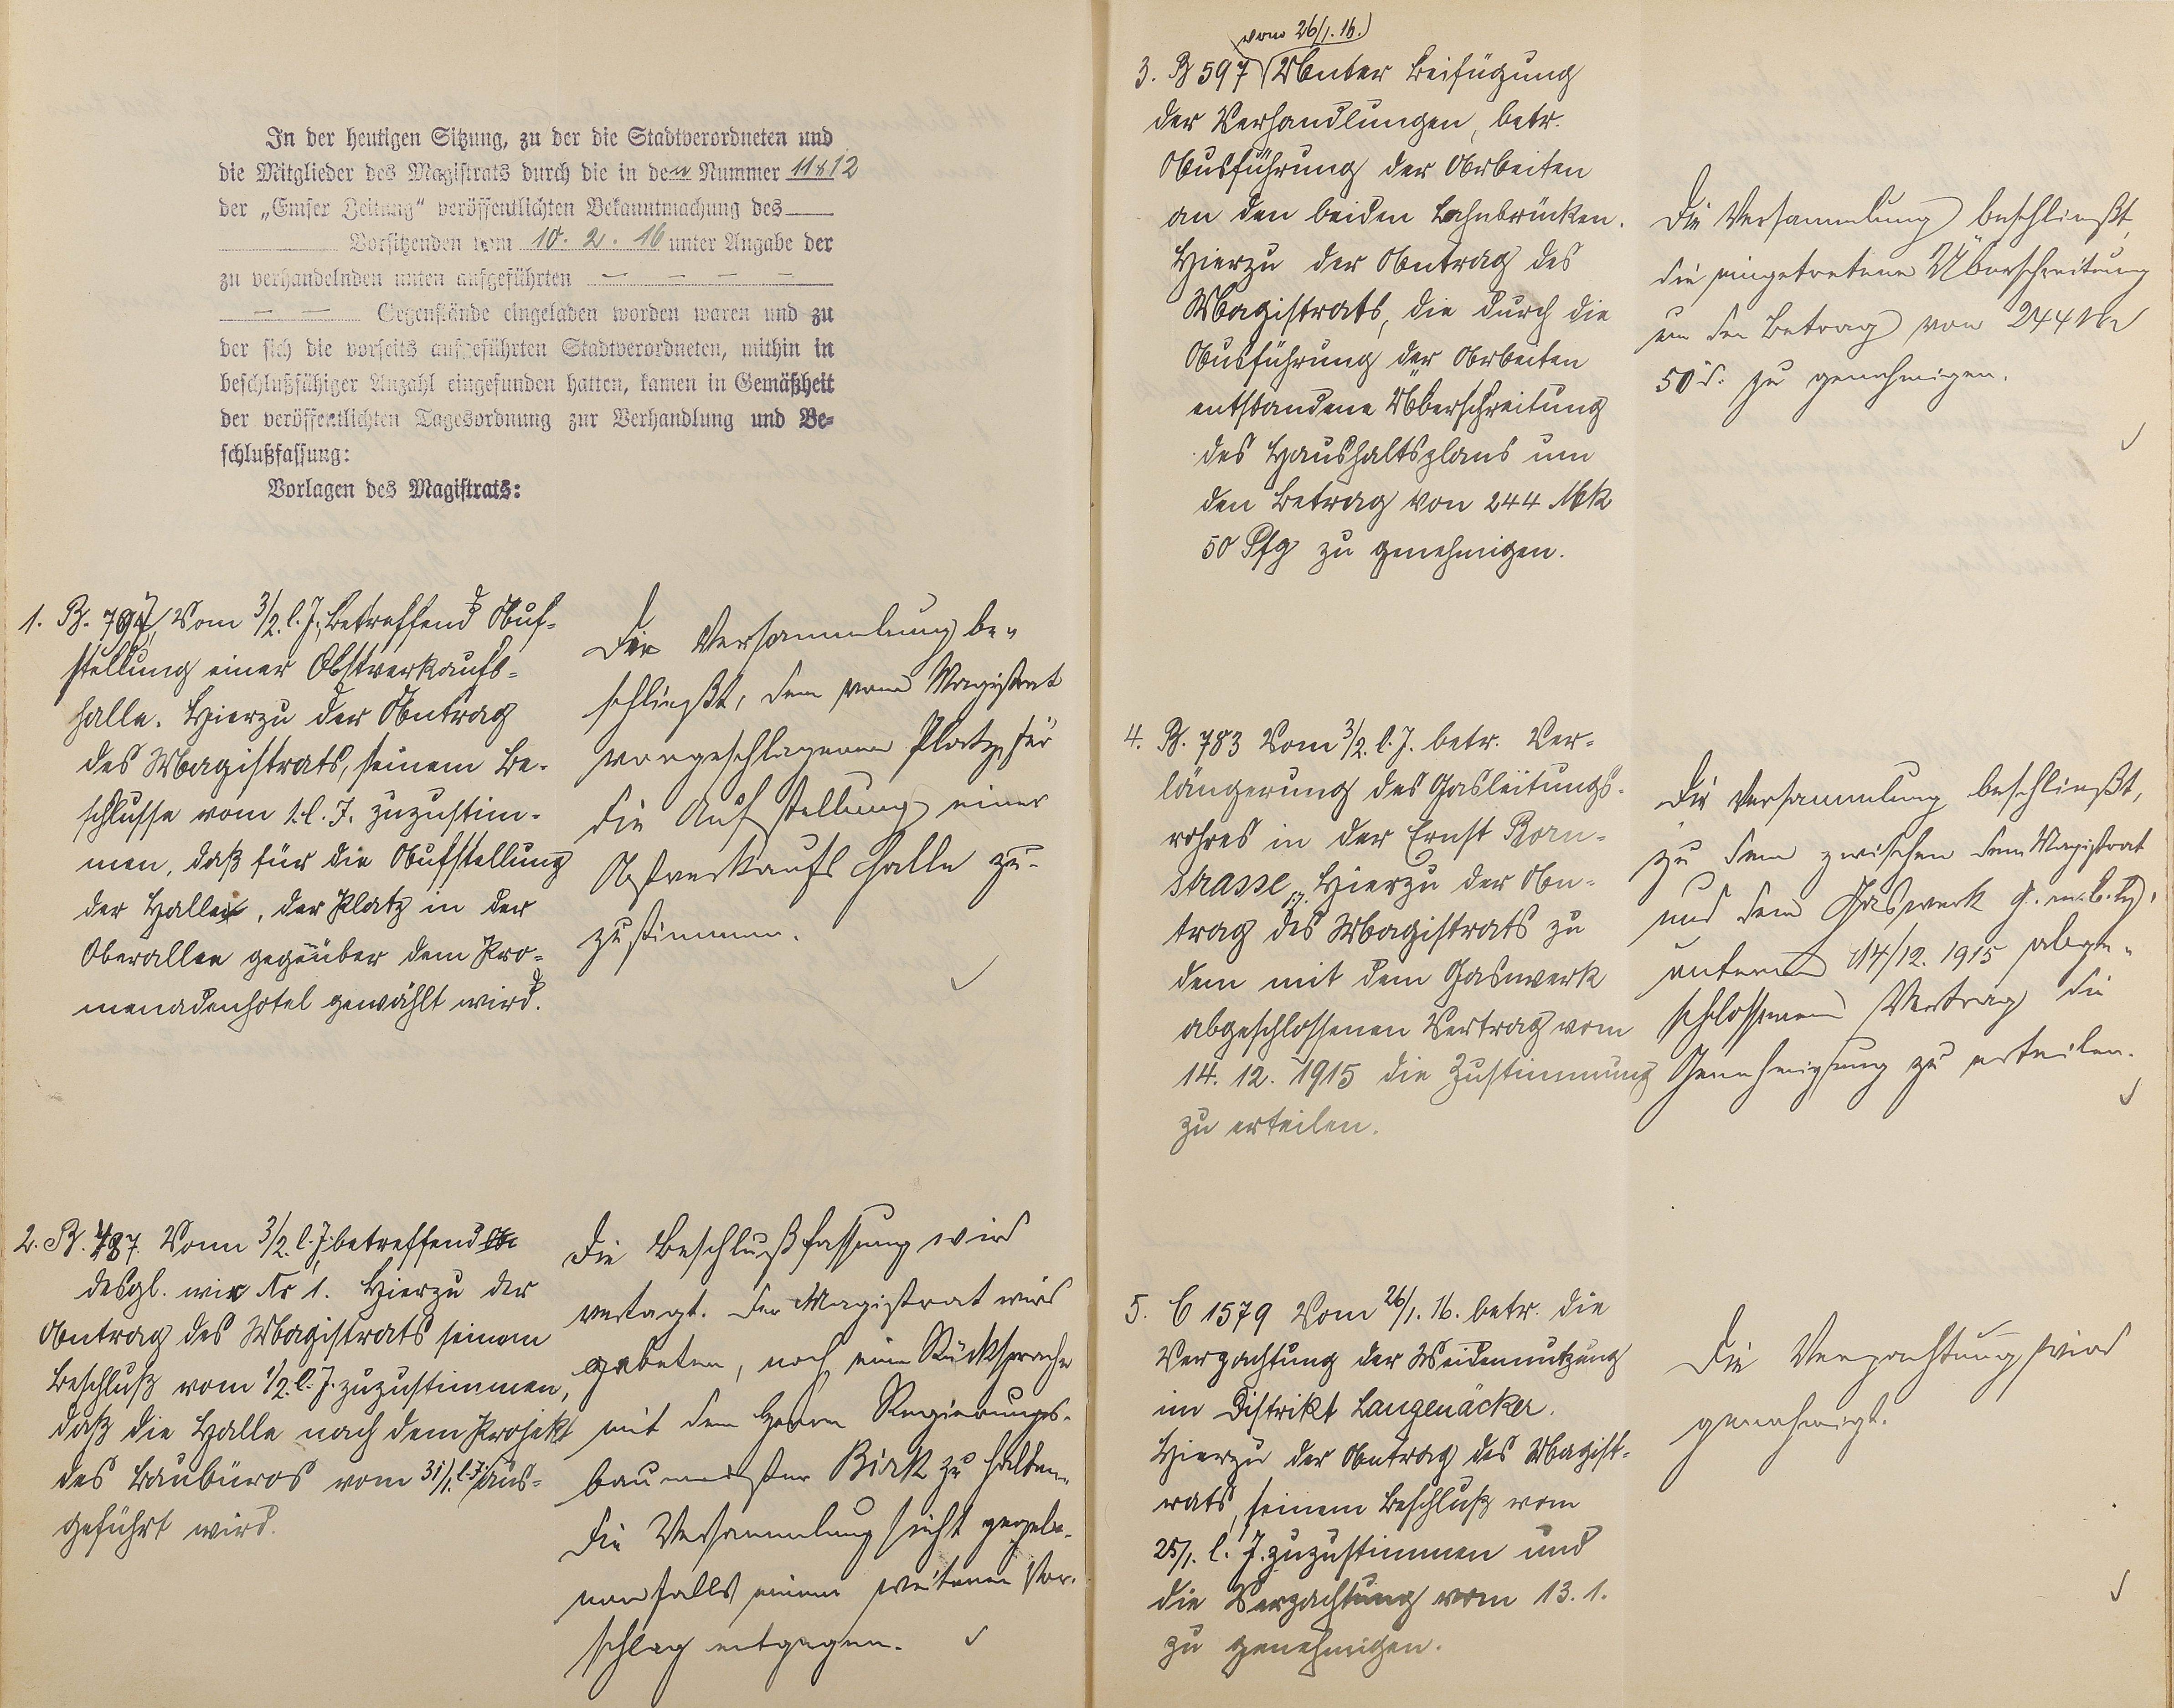 In der heutigen Sitzung, zu der die Stadtverordneten und
die Mitglieder des Magistrats durch die in den Nummer 11 & 12
der „Emser Zeitung“ veröffentlichten Bekanntmachung des
Vorsitzenden vom 10. 2. 16 unter Angabe der
zu verhandelnden unten aufgeführten
Gegenstände eingeladen worden waren und zu
der sich die vorseits aufgeführten Stadtverordneten, mithin in
beschlußfähiger Anzahl eingefunden hatten, kamen in Gemäßheit
der veröffentlichten Tagesordnung zur Verhandlung und Be-
schlußfassung:
Vorlagen des Magistrats:
1. B. 797, Vom 3/2. l. J. Betreffend Auf-
stellung einer Obstverkaufs-
halle. Hierzu der Antrag
des Magistrats, seinem Be-
schlusse vom 1. l. J. zuzustim-
men, daß für die Aufstellung
der Halle, der Platz in der
Oberallee gegenüber dem Pro-
menadenhotel gewählt wird.
Die Versammlung be-
schließt, dem vom Magistrat
vorgeschlagenen Platz für
die Aufstellung einer
Obstverkaufshalle zu-
zustimmen.
2. B. 787. Vom 3/2. l. J. betreffend
desgl. wie Nr 1. Hierzu der
Antrag des Magistrats seinem
Beschluß vom 1/2. l. J. zuzustimmen,
daß die Halle nach dem Projekt
des Baubüros vom 31/1. l. J. aus-
geführt wird.
Die Beschlußfassung wird
vertagt. Der Magistrat wird
gebeten, noch eine Rücksprache
mit dem Herrn Regierungs-
baumeister Biak zu halten.
Die Versammlung sieht gegebe-
nenfalls einem weiteren Vor-
schlag entgegen.
vom 26/1. 16.
3. B 597 Unter Beifügung
der Verhandlungen, betr.
Ausführung der Arbeiten
an den beiden Lahnbrücken.
Hierzu der Antrag des
Magistrats, die durch die
Ausführung der Arbeiten
entstandene Überschreitung
des Haushaltsplans um
den Betrag von 244 Mk
50 Pfg zu genehmigen.
Die Versammlung beschließt,
die eingetretene Überschreitung
um den Betrag von 244 Mk
50 d. zu genehmigen.
4. B. 783 Vom 3/2. l. J. betr. Ver-
längerung des Gasleitungs-
rohres in der Ernst Born-
strasse. Hierzu der An-
trag des Magistrats zu
dem mit dem Gaswerk
abgeschlossenen Vertrag vom
14. 12. 1915 die Zustimmung
zu erteilen.
Die Versammlung beschließt,
zu dem zwischen dem Magistrat
und dem Gaswerk G.m.b.H.
unterm 14/12. 1915 abge-
schlossenen Vertrag die
Genehmigung zu erteilen.
5. C 1579 Vom 26/1. 16. betr. die
Verpachtung der Weidennutzung
im Distrikt Langenäcker.
Hierzu der Antrag des Magist-
rats, seinem Beschluß vom
25/1. l. J. zuzustimmen und
die Verpachtung vom 13. 1.
zu genehmigen.
Die Verpachtung wird
genehmigt.